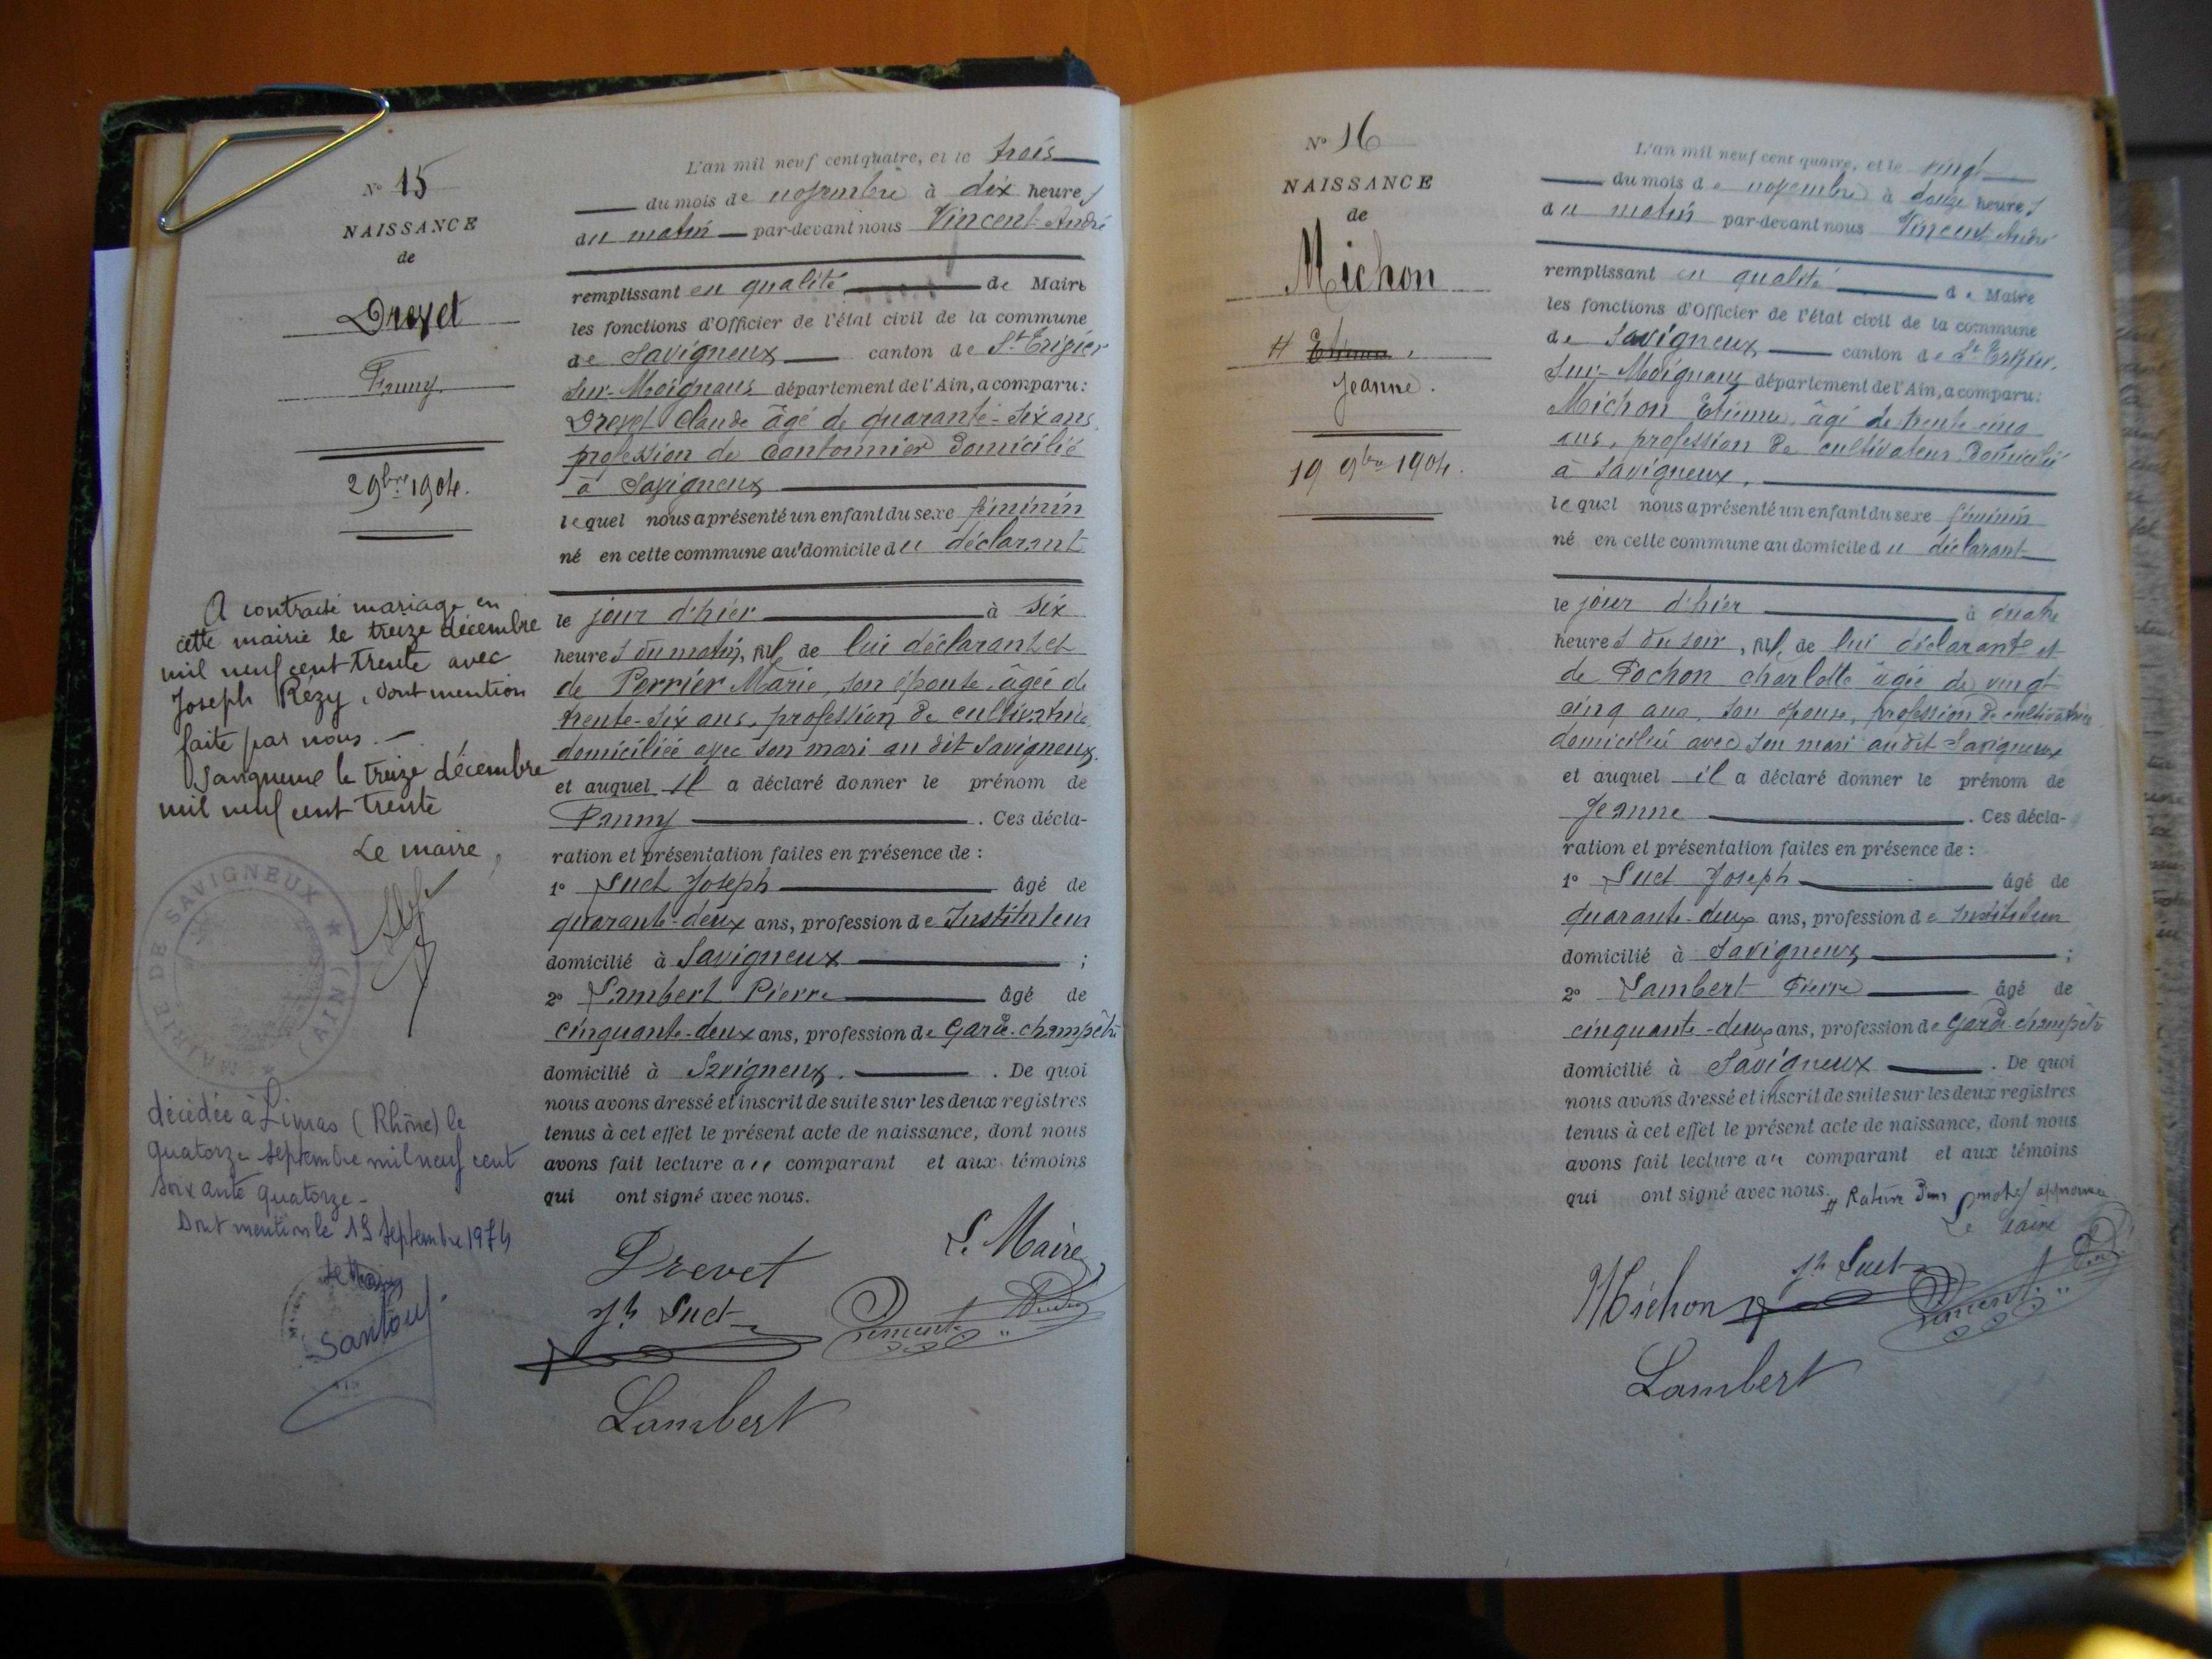 N° 15
NAISSANCE
de
Drevet
Fanny
2 9bre 1904.
A contracté mariage en
cette mairie le treize décembre
mil neuf cent trente avec
Joseph Rézy, dont mention
faite par nous. —
Savigneux le treize décembre
mil neuf cent trente
Le maire,
MAIRIE DE SAVIGNEUX (AIN)
décédée à Limas (Rhône) le
quatorze septembre mil neuf cent
soixante quatorze -
Dont mention le 19 septembre 1974
Le Maire
L'an mil neuf cent quatre, et le trois
du mois de novembre à dix heures
du matin par-devant nous Vincent André
remplissant en qualité de Maire
les fonctions d'Officier de l'état civil de la commune
de Savigneux canton de St Trivier
sur-Moignans département de l'Ain, a comparu:
Drevet Claude âgé de quarante-six ans,
profession de Cantonnier domicilié
à Savigneux
lequel nous a présenté un enfant du sexe féminin
né en cette commune au domicile du déclarant
le jour d'hier à six
heures du matin, fille de lui déclarant et
de Perrier Marie, son épouse, âgée de
trente-six ans, profession de cultivatrice
domiciliée avec son mari au dit Savigneux.
et auquel il a déclaré donner le prénom de
Fanny. Ces décla-
ration et présentation faites en présence de :
1° Suct Joseph âgé de
quarante-deux ans, profession de Instituteur
domicilié à Savigneux ;
2° Lambert Pierre âgé de
cinquante-deux ans, profession de Garde-champêtre
domicilié à Savigneux. De quoi
nous avons dressé et inscrit de suite sur les deux registres
tenus à cet effet le présent acte de naissance, dont nous
avons fait lecture au comparant et aux témoins
qui ont signé avec nous.
Le Maire
Drevet
Jh Suct
Vincent André
Lambert
N° 16
NAISSANCE
de
Michon
# Etienne
Jeanne.
19 9bre 1904.
L'an mil neuf cent quatre, et le vingt
du mois de novembre à douze heures
du matin par-devant nous Vincent André
remplissant en qualité de Maire
les fonctions d'Officier de l'état civil de la commune
de Savigneux canton de St Trivier
sur-Moignans département de l'Ain, a comparu:
Michon Etienne, âgé de trente cinq
ans, profession de cultivateur domicilié
à Savigneux,
lequel nous a présenté un enfant du sexe féminin
né en cette commune au domicile du déclarant
le jour d'hier à quatre
heures du soir, fille de lui déclarant et
de Pochon charlotte âgée de vingt
cinq ans, son épouse, profession de cultivatrice
domiciliée avec son mari audit Savigneux
et auquel il a déclaré donner le prénom de
Jeanne. Ces décla-
ration et présentation faites en présence de :
1° Suct Joseph âgé de
quarante-deux ans, profession de Instituteur
domicilié à Savigneux ;
2° Lambert Pierre âgé de
cinquante-deux ans, profession de Garde-champêtre
domicilié à Savigneux. De quoi
nous avons dressé et inscrit de suite sur les deux registres
tenus à cet effet le présent acte de naissance, dont nous
avons fait lecture au comparant et aux témoins
qui ont signé avec nous. # Rature d'un mot approuvée
Le Maire
Michon
Jh Suct
Vincent
Lambert